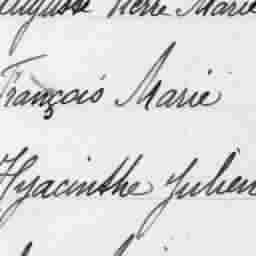 Auguste Pierre Marie
François Marie
Hyacinthe Julien